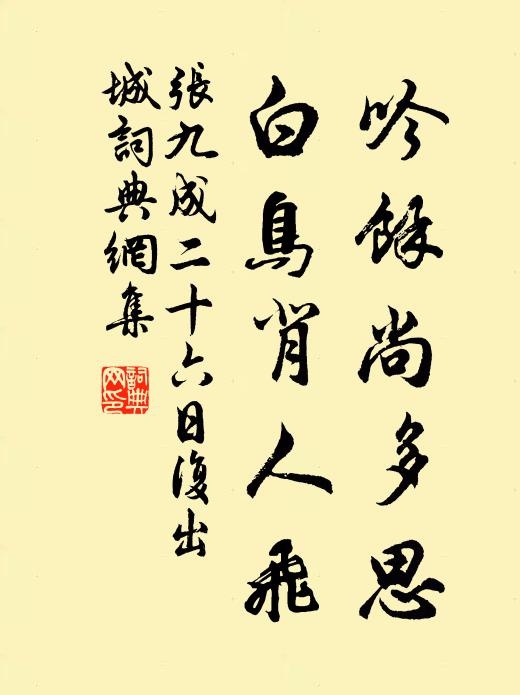 吟餘尚多思
白鳥背人飛
張九成二十六日復出
城詞典網集
詞典
网印